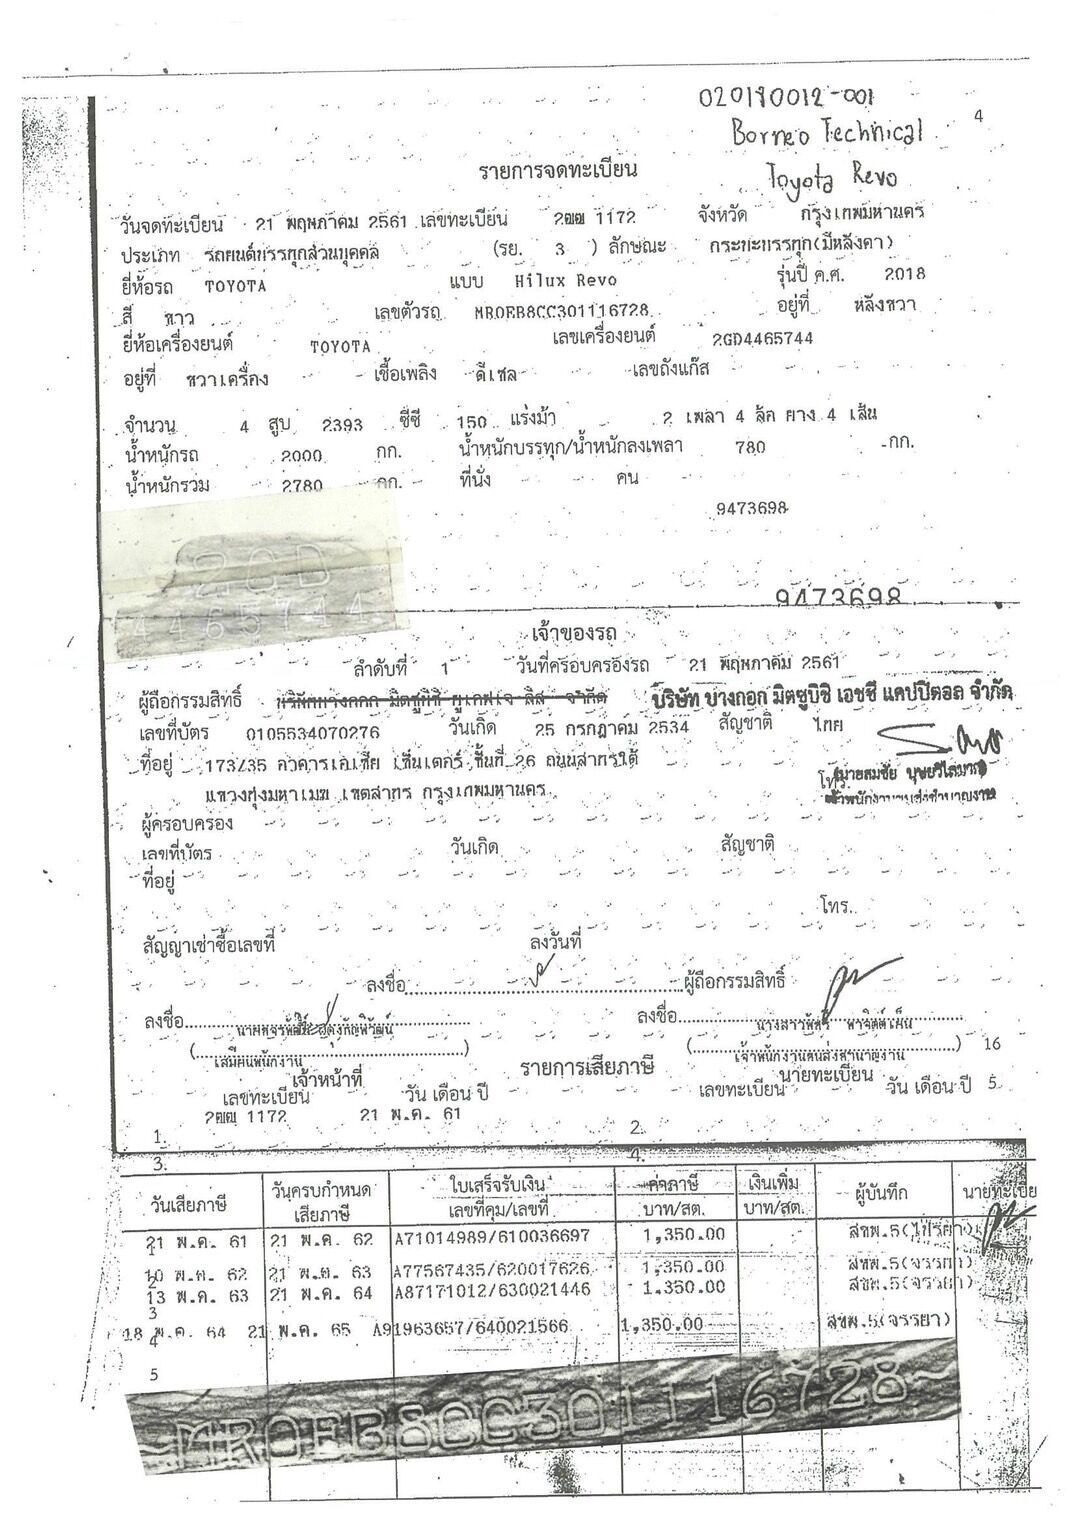 020190012-001
Borneo Technical
4
Toyota Revo
รายการจดทะเบียน
วันจดทะเบียน 21 พฤษภาคม 2561 เลขทะเบียน 2ฒฒ 1172 จังหวัด กรุงเทพมหานคร
ประเภท รถยนต์บรรทุกส่วนบุคคล (รย. 3 ) ลักษณะ กระบะบรรทุก(มีหลังคา)
ยี่ห้อรถ TOYOTA แบบ Hilux Revo รุ่นปี ค.ศ. 2018
สี ขาว เลขตัวรถ MR0EB8CC301116728 อยู่ที่ หลังขวา
ยี่ห้อเครื่องยนต์ TOYOTA เลขเครื่องยนต์ 2GD4465744
อยู่ที่ ขวาเครื่อง เชื้อเพลิง ดีเซล เลขถังแก๊ส
จำนวน 4 สูบ 2393 ซีซี 150 แรงม้า 2 เพลา 4 ล้อ ยาง 4 เส้น
น้ำหนักรถ 2000 กก. น้ำหนักบรรทุก/น้ำหนักลงเพลา 780 กก.
น้ำหนักรวม 2780 กก. ที่นั่ง คน
9473698
2GD
4465744
9473698
เจ้าของรถ
ลำดับที่ 1 วันที่ครอบครองรถ 21 พฤษภาคม 2561
ผู้ถือกรรมสิทธิ์ บริษัทบางกอก มิตซูบิชิ ยูเอฟเจ ลีส จำกัด บริษัท บางกอก มิตซูบิชิ เอชซี แคปปิตอล จำกัด
เลขที่บัตร 0105534070276 วันเกิด 25 กรกฎาคม 2534 สัญชาติ ไทย
ที่อยู่ 173/35 อาคารเอเซีย เซ็นเตอร์ ชั้นที่ 26 ถนนสาทรใต้
แขวงทุ่งมหาเมฆ เขตสาทร กรุงเทพมหานคร โทร.
ผู้ครอบครอง
เลขที่บัตร วันเกิด สัญชาติ
ที่อยู่
โทร.
สัญญาเช่าซื้อเลขที่ ลงวันที่
ลงชื่อ ผู้ถือกรรมสิทธิ์
ลงชื่อ ลงชื่อ
(เสมียนพนักงาน) (เจ้าพนักงานขนส่งชำนาญงาน) 16
เจ้าหน้าที่ รายการเสียภาษี นายทะเบียน
เลขทะเบียน วัน เดือน ปี เลขทะเบียน วัน เดือน ปี 5
2ฒฒ 1172 21 พ.ค. 61
1. 2.
3. 4.
วันเสียภาษี วันครบกำหนดเสียภาษี ใบเสร็จรับเงิน เลขที่คุม/เลขที่ ค่าภาษี บาท/สต. เงินเพิ่ม บาท/สต. ผู้บันทึก นายทะเบีย
21 พ.ค. 61 21 พ.ค. 62 A71014989/610036697 1,350.00 สขพ.5(ไปรยา)
1
10 พ.ค. 62 21 พ.ค. 63 A77567435/620017626 1,350.00 สขพ.5(จรรยา)
2
13 พ.ค. 63 21 พ.ค. 64 A87171012/630021446 1,350.00 สขพ.5(จรรยา)
3
18 พ.ค. 64 21 พ.ค. 65 A91963657/640021566 1,350.00 สขพ.5(จรรยา)
4
5
~MR0EB8CC301116728~